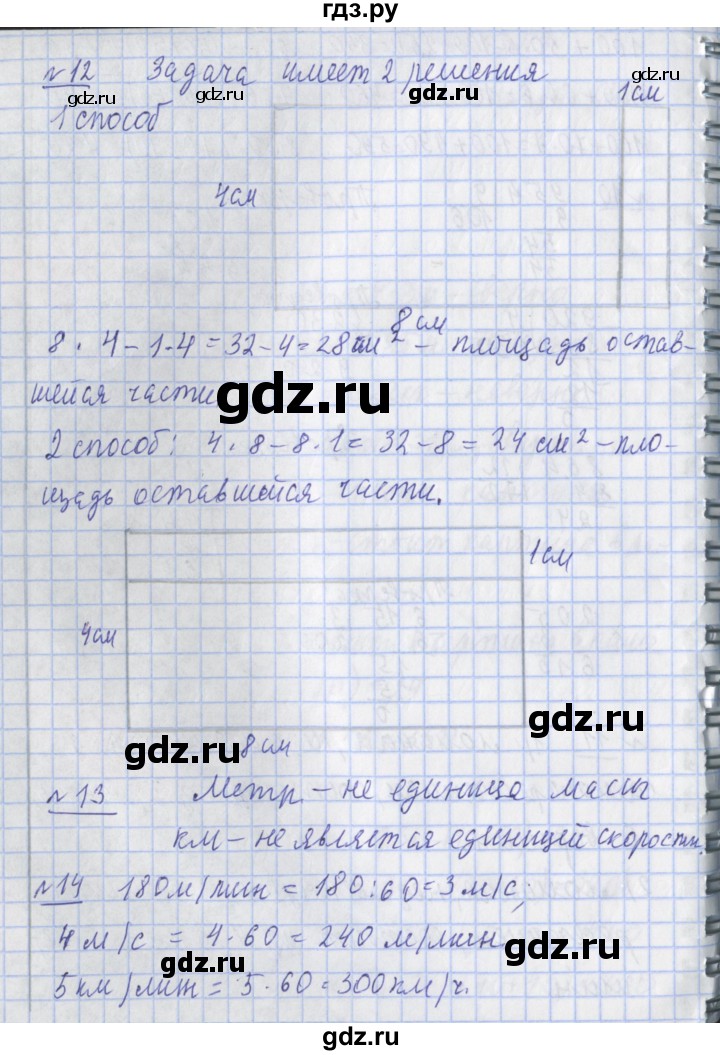 гдз.ру
№12 Задача имеет 2 решения
gdz.ru gdz.ru gdz.ru gdz.ru
1 способ
1см
4см
8см
8 · 4 - 1 · 4 = 32 - 4 = 28 см² - площадь остав-
шейся части
gdz.ru
2 способ: 4 · 8 - 8 · 1 = 32 - 8 = 24 см² - пло-
щадь оставшейся части.
1см
4см
gdz.ru
gdz.ru
8см
№13 Метр - не единица массы
gdz.ru
км - не является единицей скорости.
№14 180м/мин = 180:60=3м/с;
4м/с = 4·60 = 240 м/мин
gdz.ru
gdz.ru
5км/мин = 5·60=300км/ч.
gdz.ru
gdz.ru